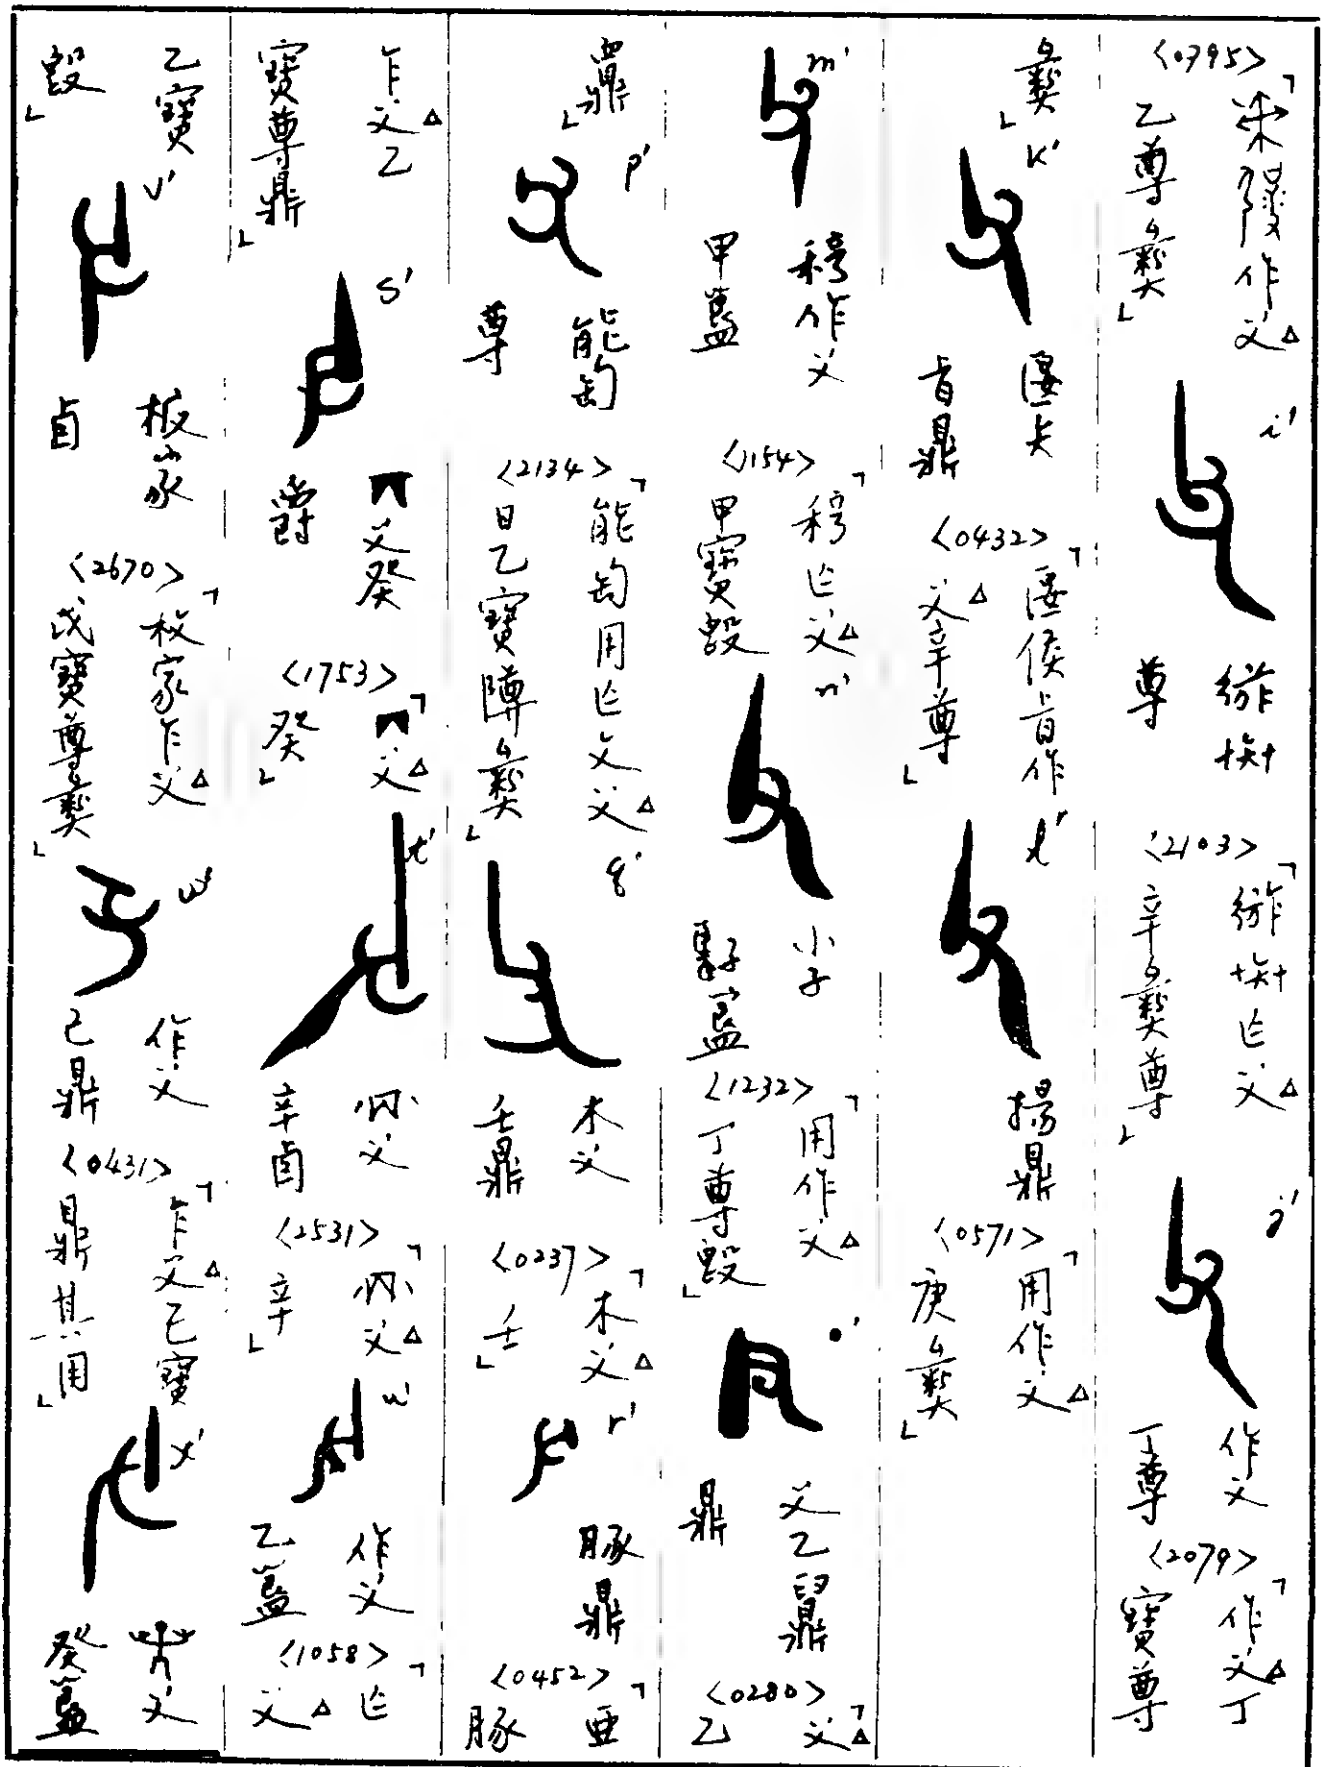 <0795>
作父△
乙尊彝」
i'
尊
<2103>
父△
辛彝尊」
j'
作父
丁尊
<2079>
「作父△丁
寶尊
彝」
k'
旨鼎
<0432>
「匽侯旨作
父△辛尊」
l'
揚鼎
<0571>
「用作父△
庚彝」
m'
作父
甲簋
<1154>
父△
甲寶𣪘
n'
小子
簋
<1232>
「用作父△
丁尊𣪘」
o'
父乙
鼎
<0280>
「父△
乙
鼎」
p'
能匋
尊
<2134>
「能匋用乍文父△
日乙寶障彝」
q'
木父
壬鼎
<0237>
「木父△
壬」
r'
豚鼎
<0452>
「亞
豚
乍父△乙
寶尊鼎」
s'
父癸
爵
<1753>
父△
癸」
t'
父
辛卣
<2531>
父△
辛」
u'
作父
乙簋
<1058>
「乍
父△
乙寶
𣪘」
v'
家
卣
<2670>
家乍父△
戊寶尊彝」
w'
作父
己鼎
<0431>
「乍父△己寶
鼎其用」
x'
父
癸簋